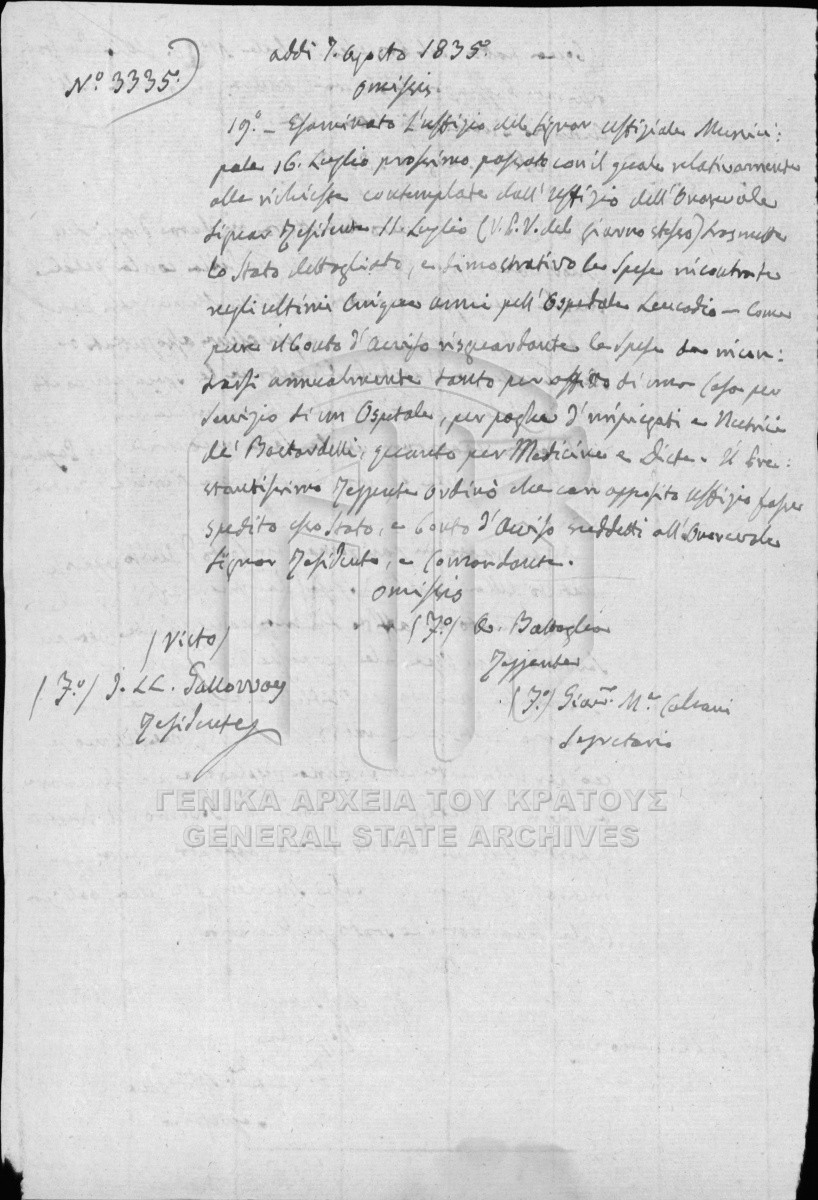 addi 7. Agosto 1835.
Nº. 3335.
Omissis.
19º. – Esaminato l'uffizio del Signor Uffiziale Munici:
pale 16. Luglio prossimo passato con il quale relativamente
alle richieste contemplate dall'uffizio dell'Onorevole
Signor Residente 11. Luglio (V. E. V. del giorno stesso) trasmette
lo Stato dettagliato, e dimostrativo le Spese incontrate
negli ultimi Cinque anni pell'Ospitale Leucadio – Come
pure il Conto d'Avviso risguardante le Spese da incon:
trarsi annualmente tanto per affitto di una Casa per
Servizio di un Ospitale, per paghe d'impiegati e Nutrici
de' Bastardelli, quanto per Medicine e Diete. Il Pre:
stantissimo Reggente ordinò che con apposito uffizio fosse
spedito esso Stato, e Conto d'Avviso suddetti all'Onorevole
Signor Residente, e Comandante.
Omissis
(Fº.) O. Battaglia
Reggente
(Visto)
(Fº.) J. LL.
Residente
(Fº.) Giovⁿⁱ. Mª.
Segretario
ΓΕΝΙΚΑ ΑΡΧΕΙΑ ΤΟΥ ΚΡΑΤΟΥΣ
GENERAL STATE ARCHIVES